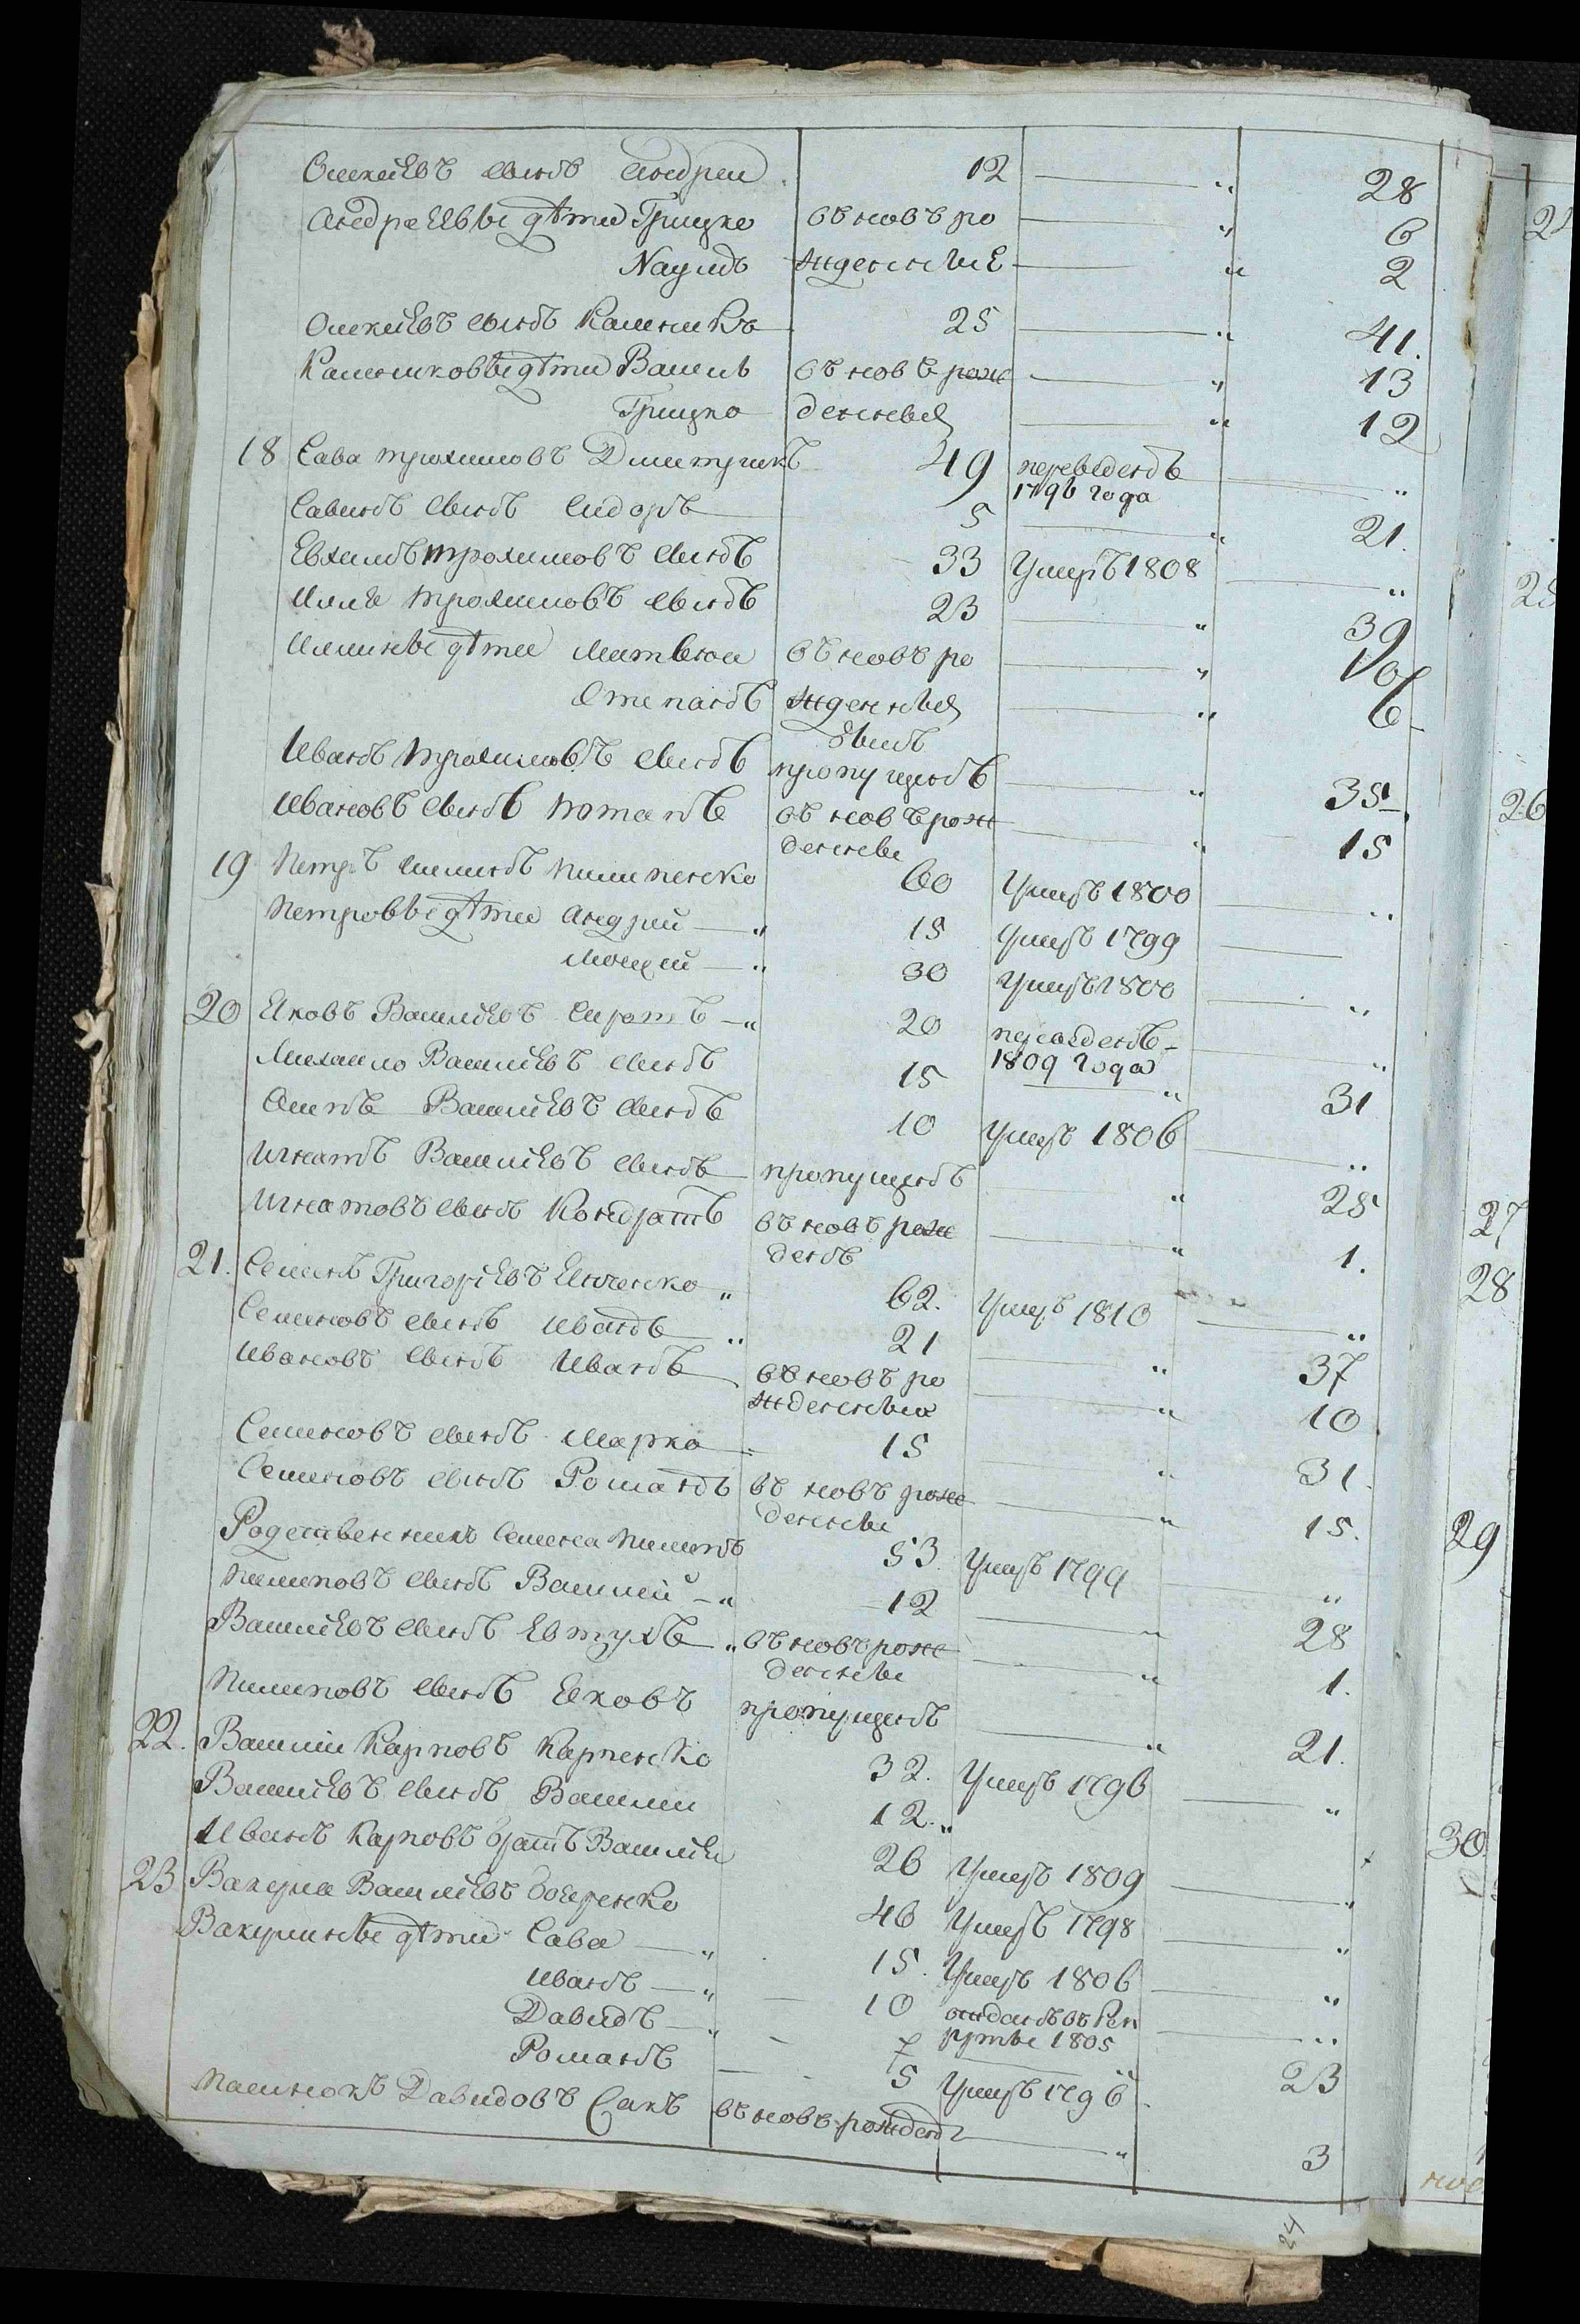 Олексѣевъ сынъ Андреи 12 — „ 28
Андреевы дѣти Грицко въ новѣ ро — „ 6
Наумъ жденные — „ 2
Олексѣевъ сынъ Калникъ 25 — „ 41.
Калниковы дѣти Василь въ новѣ рож — „ 13
Грицко денныя — „ 12
18 Сава трохимовъ Дмитрикъ 49 переведенъ — „
1796 года
Савинъ сынъ Сидоръ 5 — „ 21.
Евхимъ трохимовъ сынъ 33 Умеръ 1808 — „
Илля трохимовъ сынъ 23 — „ 39
Иллины дѣти Матвеи въ новѣ ро — „
Степанъ жденныя — „ 6
Иванъ трохимовъ сынъ былъ
пропущенъ — „ 35
Ивановъ сынъ Потапъ въ новѣ рож — „ 15
денны
19 Петръ Пилипенко 60 Умеръ 1800 — „
Петровы дѣти Андрей — „ 15 Умеръ 1799 —
Мокей — „ 30 Умеръ 1800 — „
20 Яковъ Василіевъ Сиротъ — „ 20 переведенъ — „
1809 года
Михаило Василіевъ сынъ 15 — „ 31
Осипъ Василіевъ сынъ 10 Умеръ 1806 — „
Игнатъ Василіевъ сынъ пропущенъ — „ 25
Игнатовъ сынъ Кондратъ въ новѣ рож — „ 1.
денъ
21. Семенъ Григоріевъ „ 62. Умеръ 1810 — „
Семеновъ сынъ Иванъ „ 21 — „ 37
Ивановъ сынъ Иванъ въ новѣ ро — „ 10
жденныи
Семеновъ сынъ Марко 15 — „ 31.
Семеновъ сынъ Романъ въ новѣ рож — „ 15.
денны
Родственникъ Семена Пилипъ 53. Умеръ 1799 — „
Пилиповъ сынъ Василей — „ 12 — „ 28
Василіевъ сынъ Евтухъ „ въ новѣ рож — „ 1.
денны
Пилиповъ сынъ Яковъ пропущенъ — „ 21.
22. Василии Карповъ Карпенко 32. Умеръ 1796 — „
Василіевъ сынъ Василии 12. „
Иванъ Карповъ братъ Василія 26 Умеръ 1809 — „
23 Вакула Василіевъ 46 Умеръ 1798 — „
Вакулины дѣти Сава — „ 15. Умеръ 1806 — „
Иванъ — „ 10 отданъ въ Рек — „
руты 1805
Давидъ — „ 7 — „ 23
Романъ 5 Умеръ 1796
Пасинокъ Давидовъ Сакъ въ новѣ рожденъ — „ 3
24